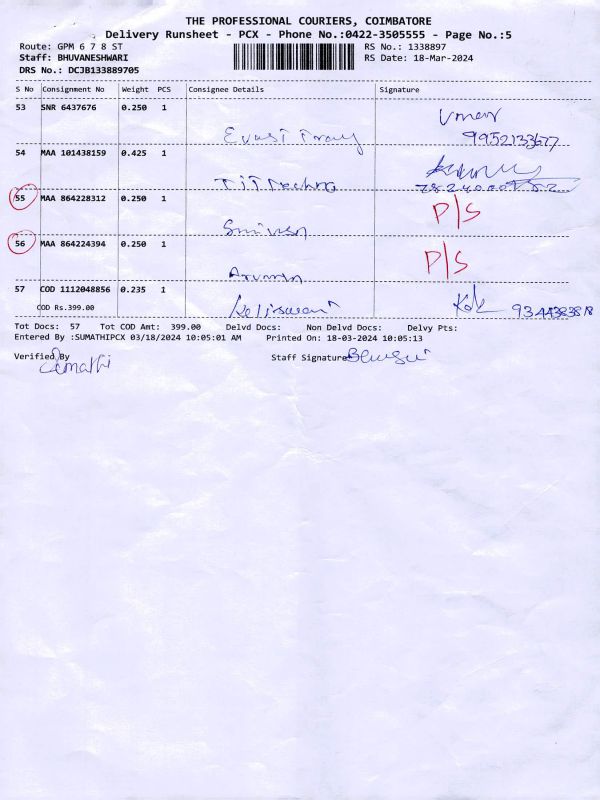 THE PROFESSIONAL COURIERS, COIMBATORE
Delivery Runsheet - PCX - Phone No.:0422-3505555 - Page No.:5
Route: GPM 6 7 8 ST
RS No.: 1338897
Staff: BHUVANESHWARI
RS Date: 18-Mar-2024
DRS No.: DCJB133889705
S No Consignment No Weight PCS Consignee Details Signature
53 SNR 6437676 0.250 1
9952133677
54 MAA 101438159 0.425 1
55 MAA 864228312 0.250 1 P/S
56 MAA 864224394 0.250 1 P/S
57 COD 1112048856 0.235 1
COD Rs.399.00
Tot Docs: 57 Tot COD Amt: 399.00 Delvd Docs: Non Delvd Docs: Delvy Pts:
Entered By :SUMATHIPCX 03/18/2024 10:05:01 AM Printed On: 18-03-2024 10:05:13
Verified By Staff Signature